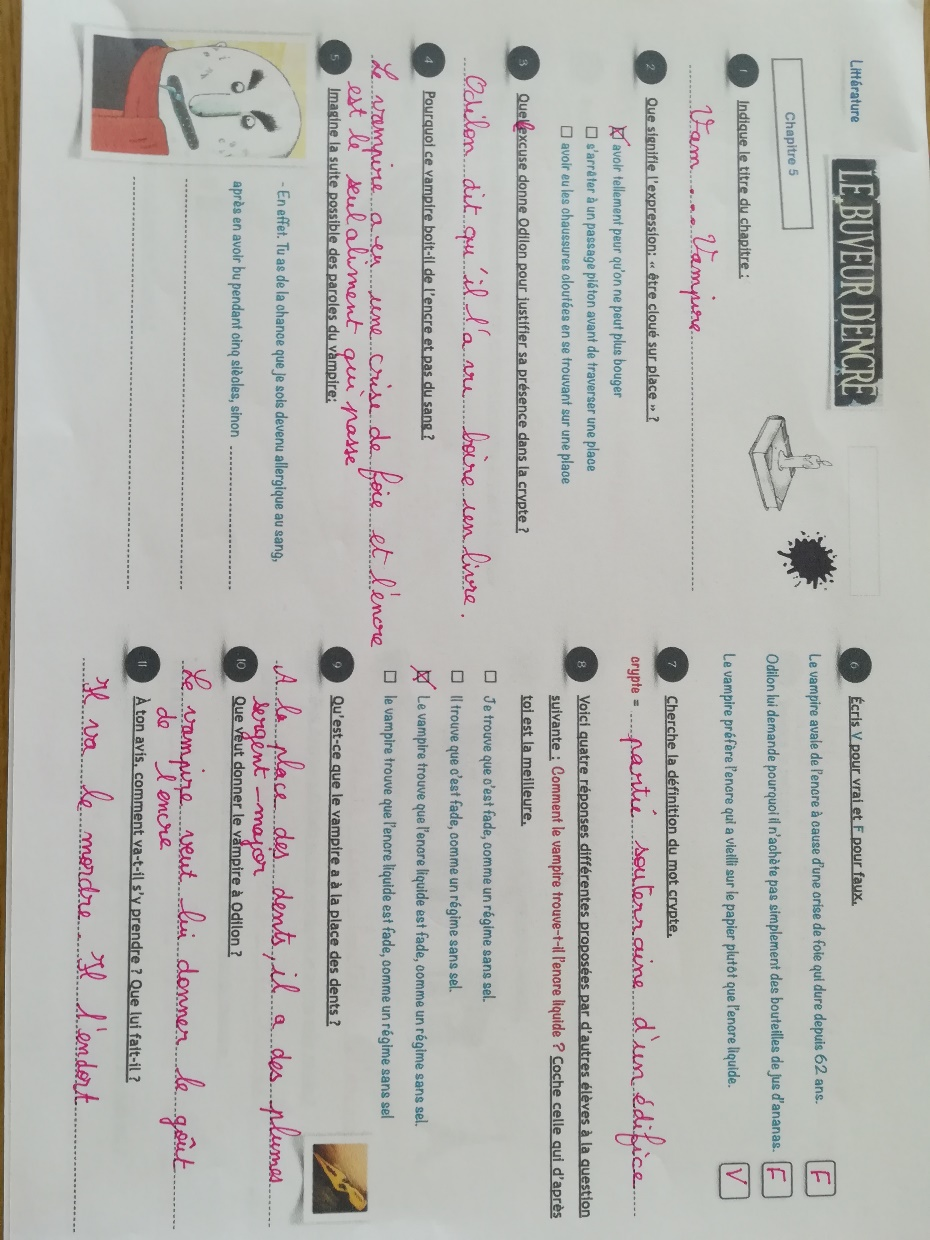 Littérature
LE BUVEUR D'ENCRE
Chapitre 5
1 Indique le titre du chapitre :
Vam......Vampire
2 Que signifie l'expression: « être cloué sur place » ?
avoir tellement peur qu'on ne peut plus bouger
s'arrêter à un passage piéton avant de traverser une place
avoir eu les chaussures cloutées en se trouvant sur une place
3 Quelle excuse donne Odilon pour justifier sa présence dans la crypte ?
Odilon dit qu'il l'a vu boire un livre.
4 Pourquoi ce vampire boit-il de l'encre et pas du sang ?
Le vampire a eu une crise de foie et l'encre
est le seul aliment qui passe
5 Imagine la suite possible des paroles du vampire:
- En effet. Tu as de la chance que je sois devenu allergique au sang,
après en avoir bu pendant cinq siècles, sinon
6 Écris V pour vrai et F pour faux.
Le vampire avale de l'encre à cause d'une crise de foie qui dure depuis 62 ans. F
Odilon lui demande pourquoi il n'achète pas simplement des bouteilles de jus d'ananas. F
Le vampire préfère l'encre qui a vieilli sur le papier plutôt que l'encre liquide. V
7 Cherche la définition du mot crypte.
crypte = partie souterraine d'un édifice
8 Voici quatre réponses différentes proposées par d'autres élèves à la question
suivante : Comment le vampire trouve-t-il l'encre liquide ? Coche celle qui d'après
toi est la meilleure.
Je trouve que c'est fade, comme un régime sans sel.
Il trouve que c'est fade, comme un régime sans sel.
Le vampire trouve que l'encre liquide est fade, comme un régime sans sel.
le vampire trouve que l'encre liquide est fade, comme un régime sans sel
9 Qu'est-ce que le vampire a à la place des dents ?
A la place des dents, il a des plumes
sergent-major
10 Que veut donner le vampire à Odilon ?
Le vampire veut lui donner le goût
de l'encre
11 À ton avis, comment va-t-il s'y prendre ? Que lui fait-il ?
Il va le mordre. Il l'endort